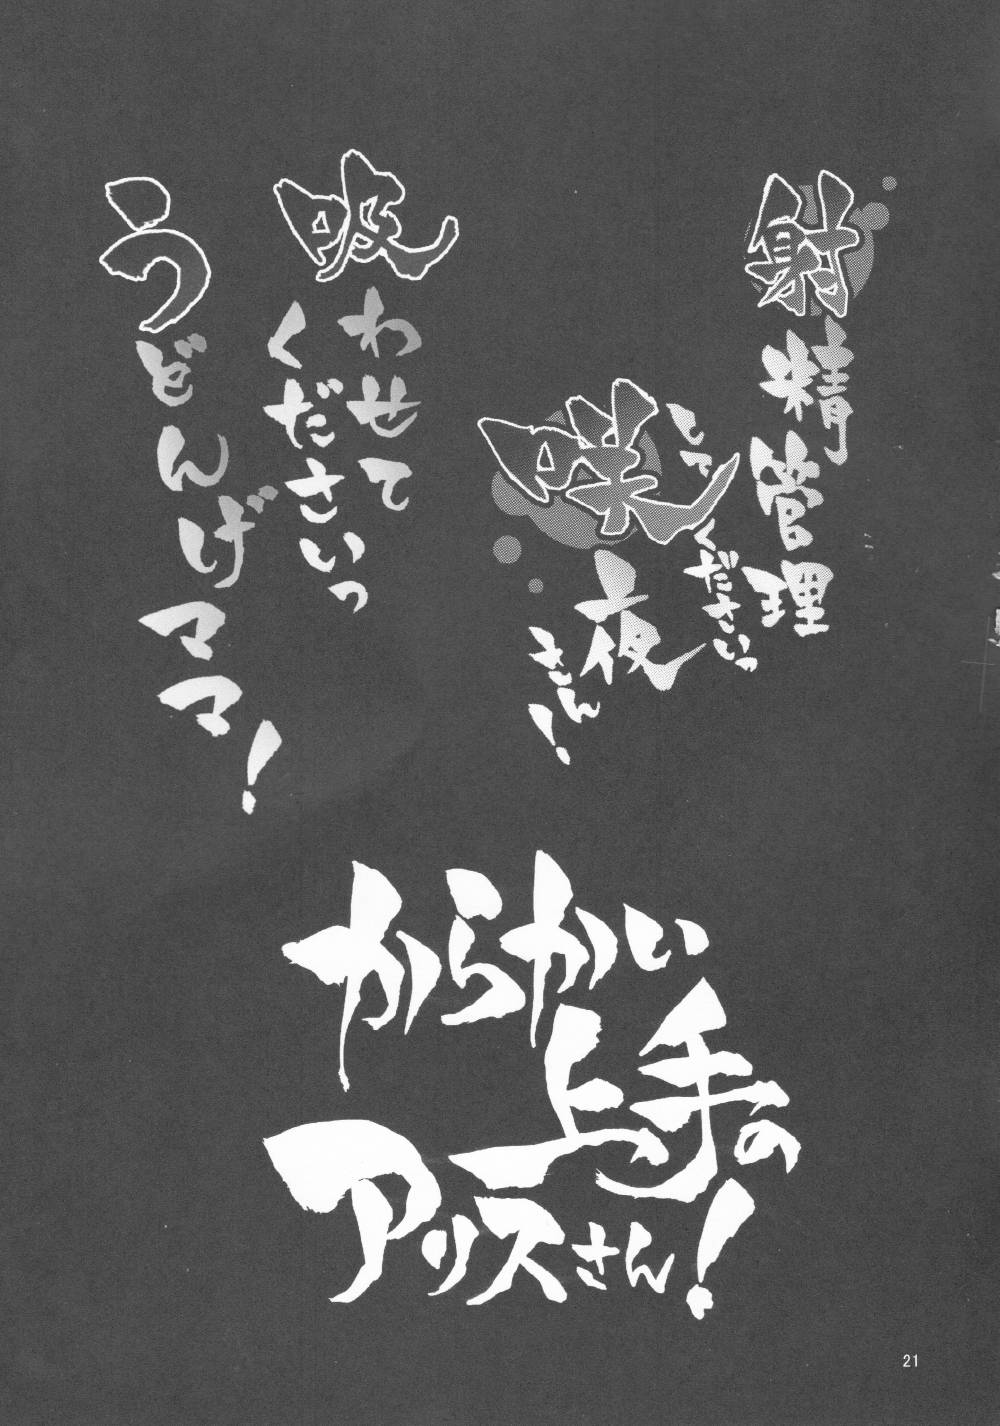 射精管理
してくださいっ
咲夜
さん!
吸わせて
くださいっ
うどんげママ!
からかい
上手の
アリスさん!
21